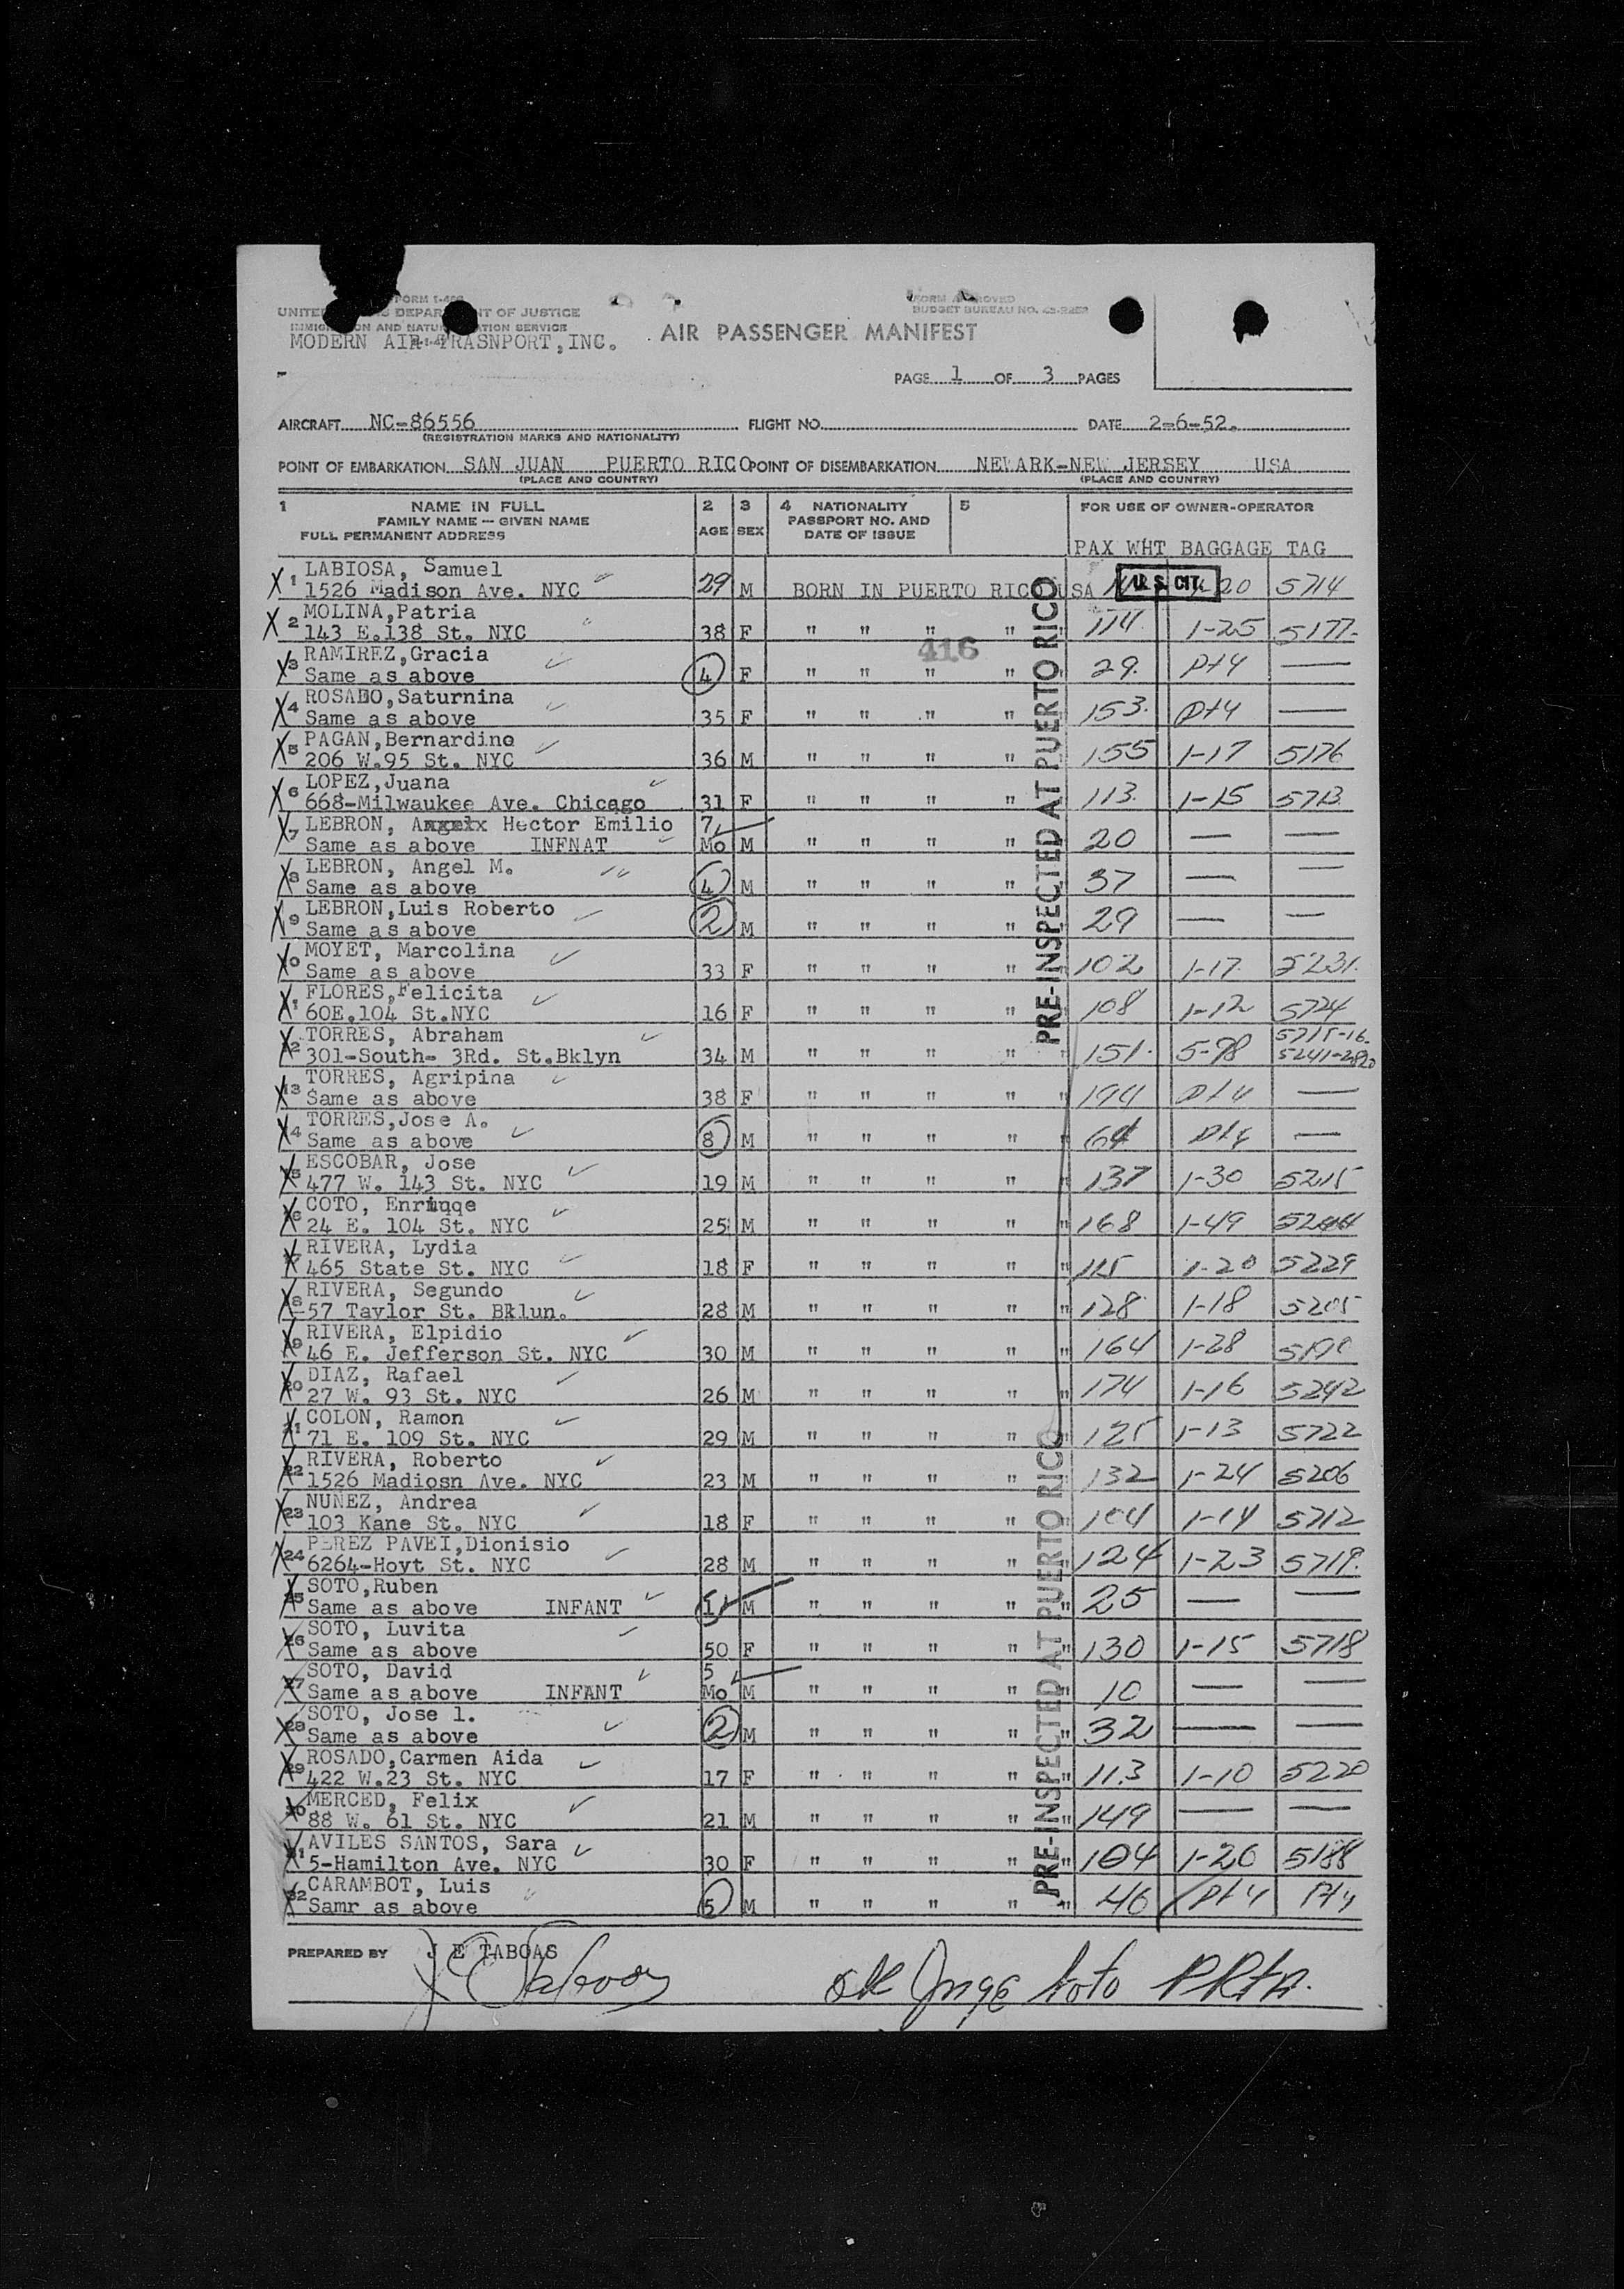 FORM I-466
FORM APPROVED
BUDGET BUREAU NO.
UNITED DEPARTMENT OF JUSTICE
IMMIGRATION AND NATURALIZATION SERVICE
MODERN AIR TRASNPORT,INC.
AIR PASSENGER MANIFEST
PAGE 1 OF 3 PAGES
AIRCRAFT NC-86556 FLIGHT NO. DATE 2-6-52.
(REGISTRATION MARKS AND NATIONALITY)
POINT OF EMBARKATION SAN JUAN PUERTO RICO POINT OF DISEMBARKATION NEWARK-NEW JERSEY USA
(PLACE AND COUNTRY) (PLACE AND COUNTRY)
1 NAME IN FULL 2 3 4 NATIONALITY 5 FOR USE OF OWNER-OPERATOR
FAMILY NAME — GIVEN NAME AGE SEX PASSPORT NO. AND
FULL PERMANENT ADDRESS DATE OF ISSUE
PAX WHT BAGGAGE TAG
LABIOSA, Samuel
X 1 1526 Madison Ave. NYC 29 M BORN IN PUERTO RICO USA U.S. CIT. 20 5714
MOLINA,Patria
X 2 143 E.138 St. NYC 38 F " " " " 114 1-25 5177
416
RAMIREZ,Gracia
X 3 Same as above 4 F " " " " 29. Pty —
ROSADO,Saturnina
X 4 Same as above 35 F " " " " 153. Pty —
PAGAN,Bernardino
X 5 206 W.95 St. NYC 36 M " " " " 155 1-17 5176
LOPEZ,Juana
X 6 668-Milwaukee Ave. Chicago 31 F " " " " 113. 1-15 5713
LEBRON, Axxelx Hector Emilio 7
X 7 Same as above INFNAT Mo M " " " " 20 — —
LEBRON, Angel M.
X 8 Same as above 4 M " " " " 37 — —
LEBRON,Luis Roberto
X 9 Same as above 2 M " " " " 29 — —
MOYET, Marcolina
X 0 Same as above 33 F " " " " 102 1-17 5231.
FLORES,Felicita
X 1 60E.104 St.NYC 16 F " " " " 108 1-12 5724
TORRES, Abraham 5715-16-
X 2 301-South- 3Rd. St.Bklyn 34 M " " " " 151. 5-78
TORRES, Agripina
X 13 Same as above 38 F " " " " " 194 Pty —
TORRES,Jose A.
X 4 Same as above 8 M " " " " " 64 Pty —
ESCOBAR, Jose
X 5 477 W. 143 St. NYC 19 M " " " " " 137 1-30 5215
COTO, Enriuqqe
X 6 24 E. 104 St. NYC 25 M " " " " " 168 1-49
RIVERA, Lydia
X 7 465 State St. NYC 18 F " " " " " 115 1-20 5229
RIVERA, Segundo
X 8 57 Taylor St. Bklun. 28 M " " " " " 128 1-18 5205
RIVERA, Elpidio
X 9 46 E. Jefferson St. NYC 30 M " " " " " 164 1-28
DIAZ, Rafael
X 20 27 W. 93 St. NYC 26 M " " " " " 174 1-16 5242
COLON, Ramon
X 1 71 E. 109 St. NYC 29 M " " " " " 125 1-13 5722
RIVERA, Roberto
X 22 1526 Madiosn Ave. NYC 23 M " " " " " 132 1-24 5206
NUNEZ, Andrea
X 23 103 Kane St. NYC 18 F " " " " " 104 1-14 5712
PEREZ PAVEI,Dionisio
X 24 6264-Hoyt St. NYC 28 M " " " " " 124 1-23 5719.
SOTO,Ruben
X 25 Same as above INFANT 1 M " " " " " 25 — —
SOTO, Luvita
X 26 Same as above 50 F " " " " " 130 1-15 5718
SOTO, David 5
X 27 Same as above INFANT Mo M " " " " " 10 — —
SOTO, Jose l.
X 28 Same as above 2 M " " " " " 32 — —
ROSADO,Carmen Aida
X 29 422 W.23 St. NYC 17 F " " " " " 113 1-10 5220
MERCED, Felix
X 30 88 W. 61 St. NYC 21 M " " " " " 149 — —
AVILES SANTOS, Sara
X 31 5-Hamilton Ave. NYC 30 F " " " " " 104 1-20 5188
CARAMBOT, Luis
X 32 Samr as above 5 M " " " " " 46 Pty Pty
PRE-INSPECTED AT PUERTO RICO
PRE-INSPECTED AT PUERTO RICO
PREPARED BY J E TABOAS
JE Taboas OK Jorge Soto PRTA.